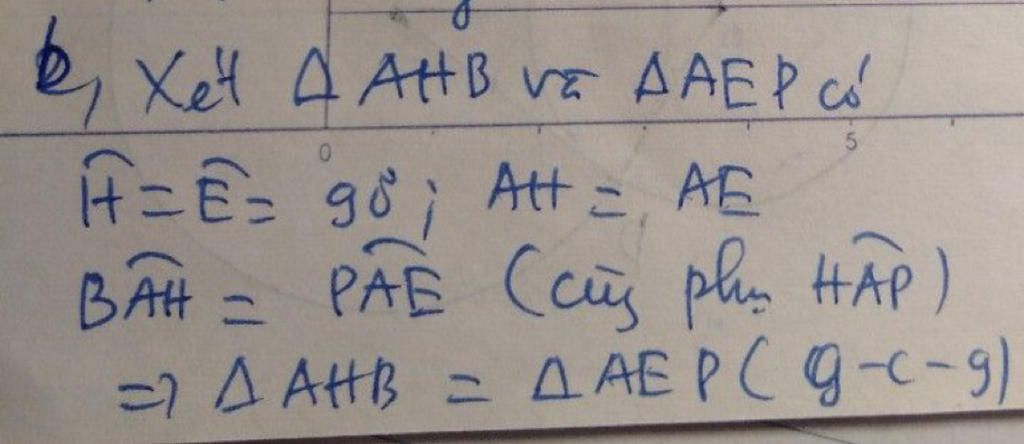 b, Xét Δ AHB và ΔAEP có
0 5
Ĥ = Ê = 90°; AH = AE
BÂH = PÂE (cùng phụ HÂP)
=> Δ AHB = Δ AEP (g-c-g)